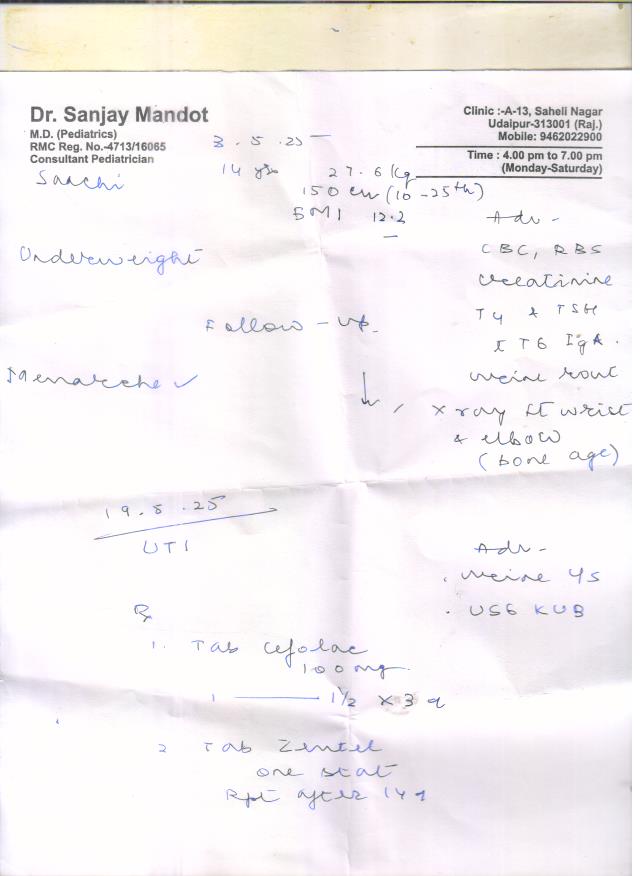 Dr. Sanjay Mandot
M.D. (Pediatrics)
RMC Reg. No.-4713/16065
Consultant Pediatrician
Clinic :-A-13, Saheli Nagar
Udaipur-313001 (Raj.)
Mobile: 9462022900
Time : 4.00 pm to 7.00 pm
(Monday-Saturday)
3.5.25
Saachi
14 yrs 27.6 kg
150 cm (10-25th)
BMI 12.2
Underweight
Follow-up
Menarche ✓
Adv-
CBC, RBS
creatinine
T4 & TSH
t TG IgA.
urine rout
x ray lt wrist
& elbow
(bone age)
19.5.25
UTI
Adv-
. urine c/s
. USG KUB
Rx
1. Tab Cefolac
100 mg
1 — 1½ x 3 d
2 Tab Zentel
one stat
Rpt after 14 d